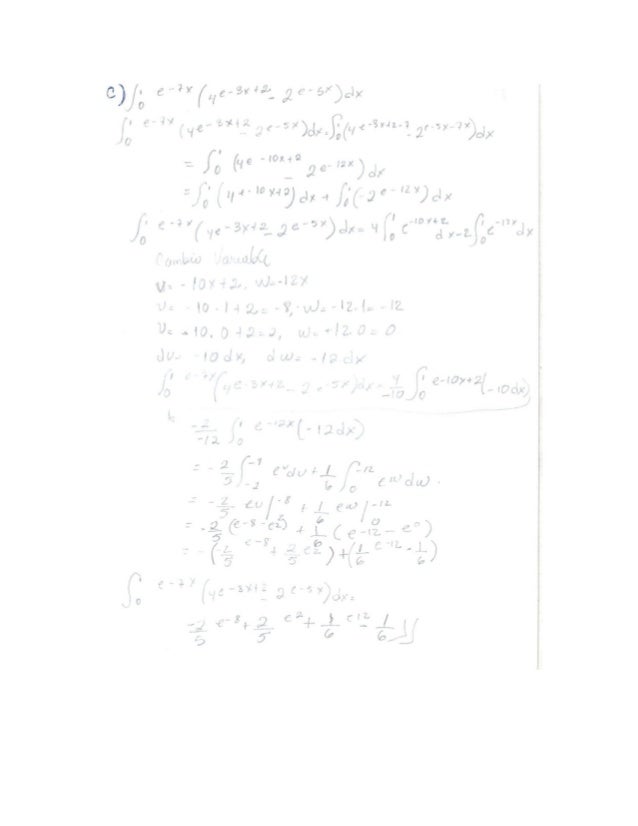 c) ∫₀¹ e-7x (4e-3x+2 - 2e-5x)dx
∫₀¹ e-7x (4e-3x+2 - 2e-5x)dx = ∫₀¹(4e-3x+2-7 - 2e-5x-7x)dx
= ∫₀¹ (4e-10x+2 - 2e-12x)dx
= ∫₀¹ (4e-10x+2) dx + ∫₀¹(-2e-12x)dx
∫₀¹ e-7x (4e-3x+2 - 2e-5x)dx = 4∫₀¹ e-10x+2 dx-2∫₀¹ e-12x dx
Cambio Variable
u = -10x+2, w=-12x
U= -10·1+2=-8, w=-12.1=-12
U= 10.0+2=2, w= 12.0=0
du= -10dx, dw= -12dx
∫₀¹ e-7x(4e-3x+2 - 2e-5x)dx= 4/-10 ∫₀¹ e-10x+2(-10dx)
-2/-12 ∫₀¹ e-12x(-12dx)
= -2/5 ∫ -8 eudu + 1/6 ∫₀-12 ewdw.
= -2/5 eu|-8 2 + 1/6 ew|-12 0
= -2/5 (e-8-e2) + 1/6 (e-12-e0)
= -(2/5 e-8 + 2/5 e2)+(1/6 e-12 - 1/6)
∫₀¹ e-7x (4e-3x+2 - 2e-5x)dx=
-2/5 e-8 + 2/5 e2 + 1/6 e12 - 1/6 //